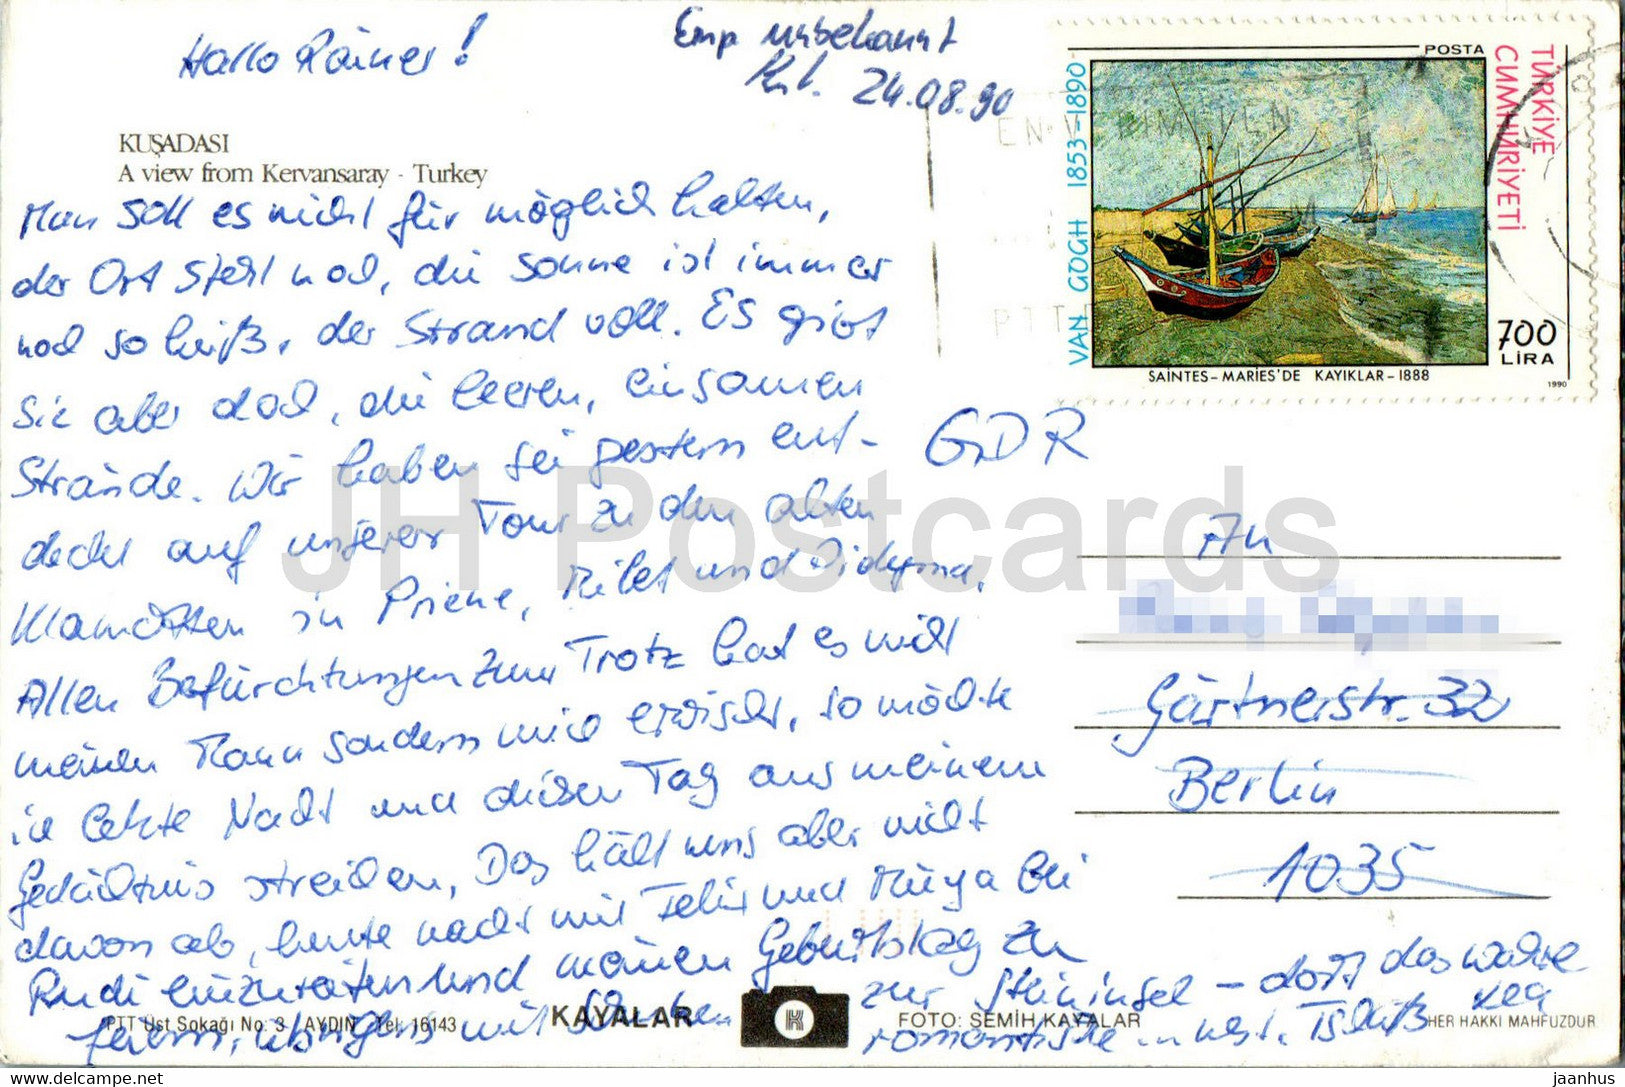 Hallo Rainer!
Emp unbekannt
24.08.90
KUŞADASI
A view from Kervansaray - Turkey
Man soll es nicht für möglich halten,
der Ort steht noch, die Sonne ist immer
noch so heiß, der Strand voll. Es gibt
sie aber doch, die leeren, einsamen
Strände. Wir haben sie gestern ent-
deckt auf unserer Tour zu den alten
Klamotten in Priene, Milet und Didyma.
Allen Befürchtungen zum Trotz hat es nicht
meinen Mann sondern mich erwischt, so möchte
ich letzte Nacht und diesen Tag aus meinem
Gedächtnis streichen. Das hält uns aber nicht
davon ab, heute nacht mit Felix und bei
Rudi einzureiten und meinen Geburtstag zu
feiern, übrigens mit
zur - dort das wahre
romantische
POSTA
TÜRKİYE
CUMHURİYETİ
VAN GOGH 1853-1890
700
LİRA
SAINTES-MARIES'DE KAYIKLAR-1888
1990
PTT
GDR
An
Gärtnerstr. 32
Berlin
1035
PTT Üst Sokağı No. 3 AYDIN Tel: 16143
KAYALAR
K
FOTO: SEMİH KAYALAR
HER HAKKI MAHFUZDUR
JH Postcards
jaanhus
delcampe.net